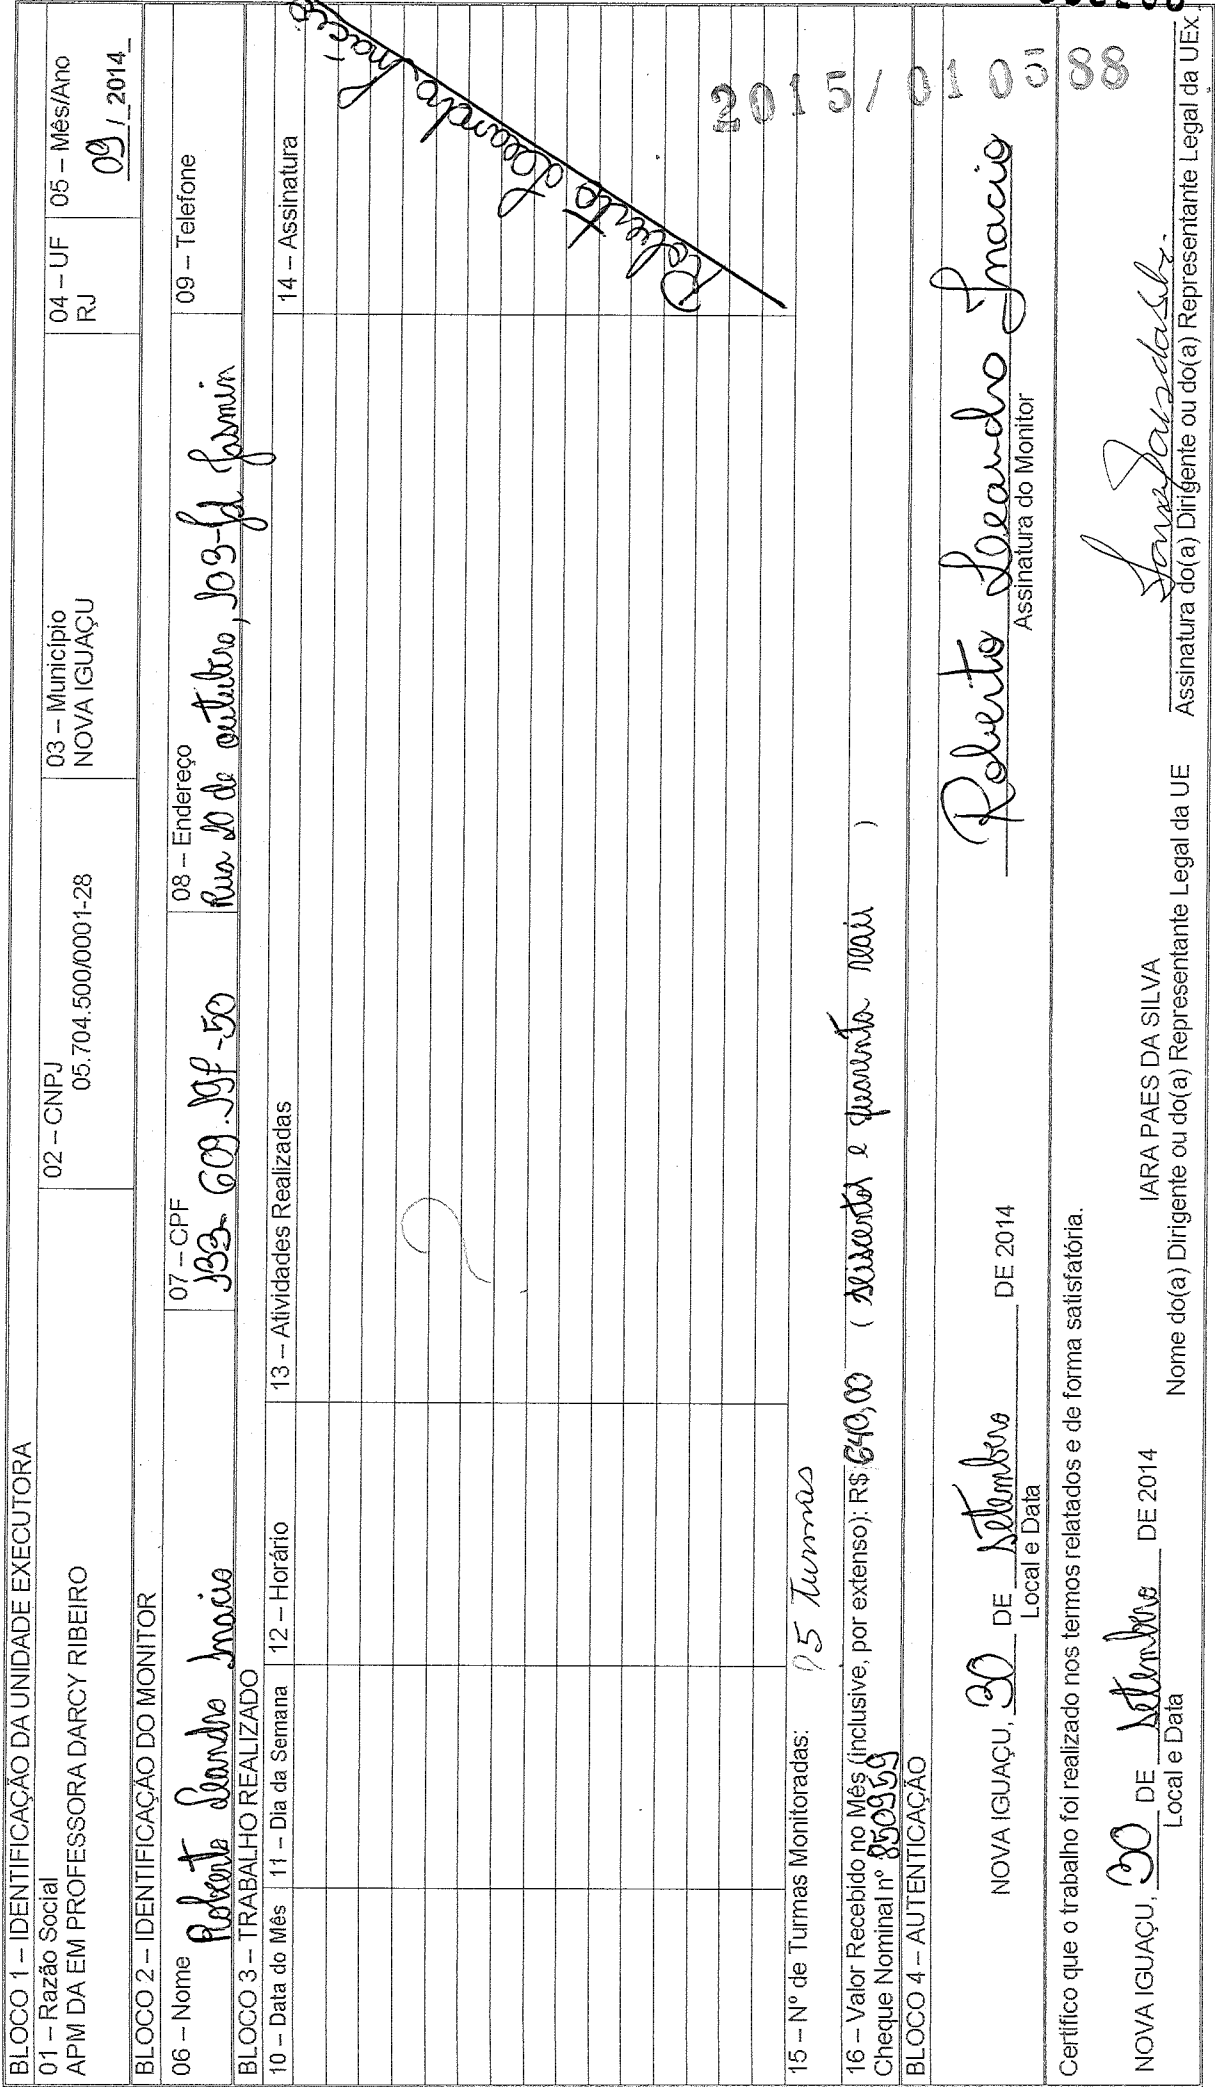 BLOCO 1 – IDENTIFICAÇÃO DA UNIDADE EXECUTORA
01 – Razão Social
APM DA EM PROFESSORA DARCY RIBEIRO
02 – CNPJ
05.704.500/0001-28
03 – Município
NOVA IGUAÇU
04 – UF
RJ
05 – Mês/Ano
09 / 2014
BLOCO 2 – IDENTIFICAÇÃO DO MONITOR
06 – Nome
Roberto Leandro Inacio
07 – CPF
133. 609.197-50
08 – Endereço
Rua 20 de outubro, 103-Jd Jasmin
09 – Telefone
BLOCO 3 – TRABALHO REALIZADO
10 – Data do Mês
11 – Dia da Semana
12 – Horário
13 – Atividades Realizadas
14 – Assinatura
Roberto Leandro Inacio
15 – Nº de Turmas Monitoradas: 05 Turmas
16 – Valor Recebido no Mês (inclusive, por extenso): R$ 640,00 ( seiscentos e quarenta reais )
Cheque Nominal nº 850959
BLOCO 4 – AUTENTICAÇÃO
2015/010088
NOVA IGUAÇU, 30 DE setembro DE 2014
Local e Data
Roberto Leandro Inacio
Assinatura do Monitor
Certifico que o trabalho foi realizado nos termos relatados e de forma satisfatória.
NOVA IGUAÇU, 30 DE setembro DE 2014
Local e Data
IARA PAES DA SILVA
Nome do(a) Dirigente ou do(a) Representante Legal da UE
Assinatura do(a) Dirigente ou do(a) Representante Legal da UEx.